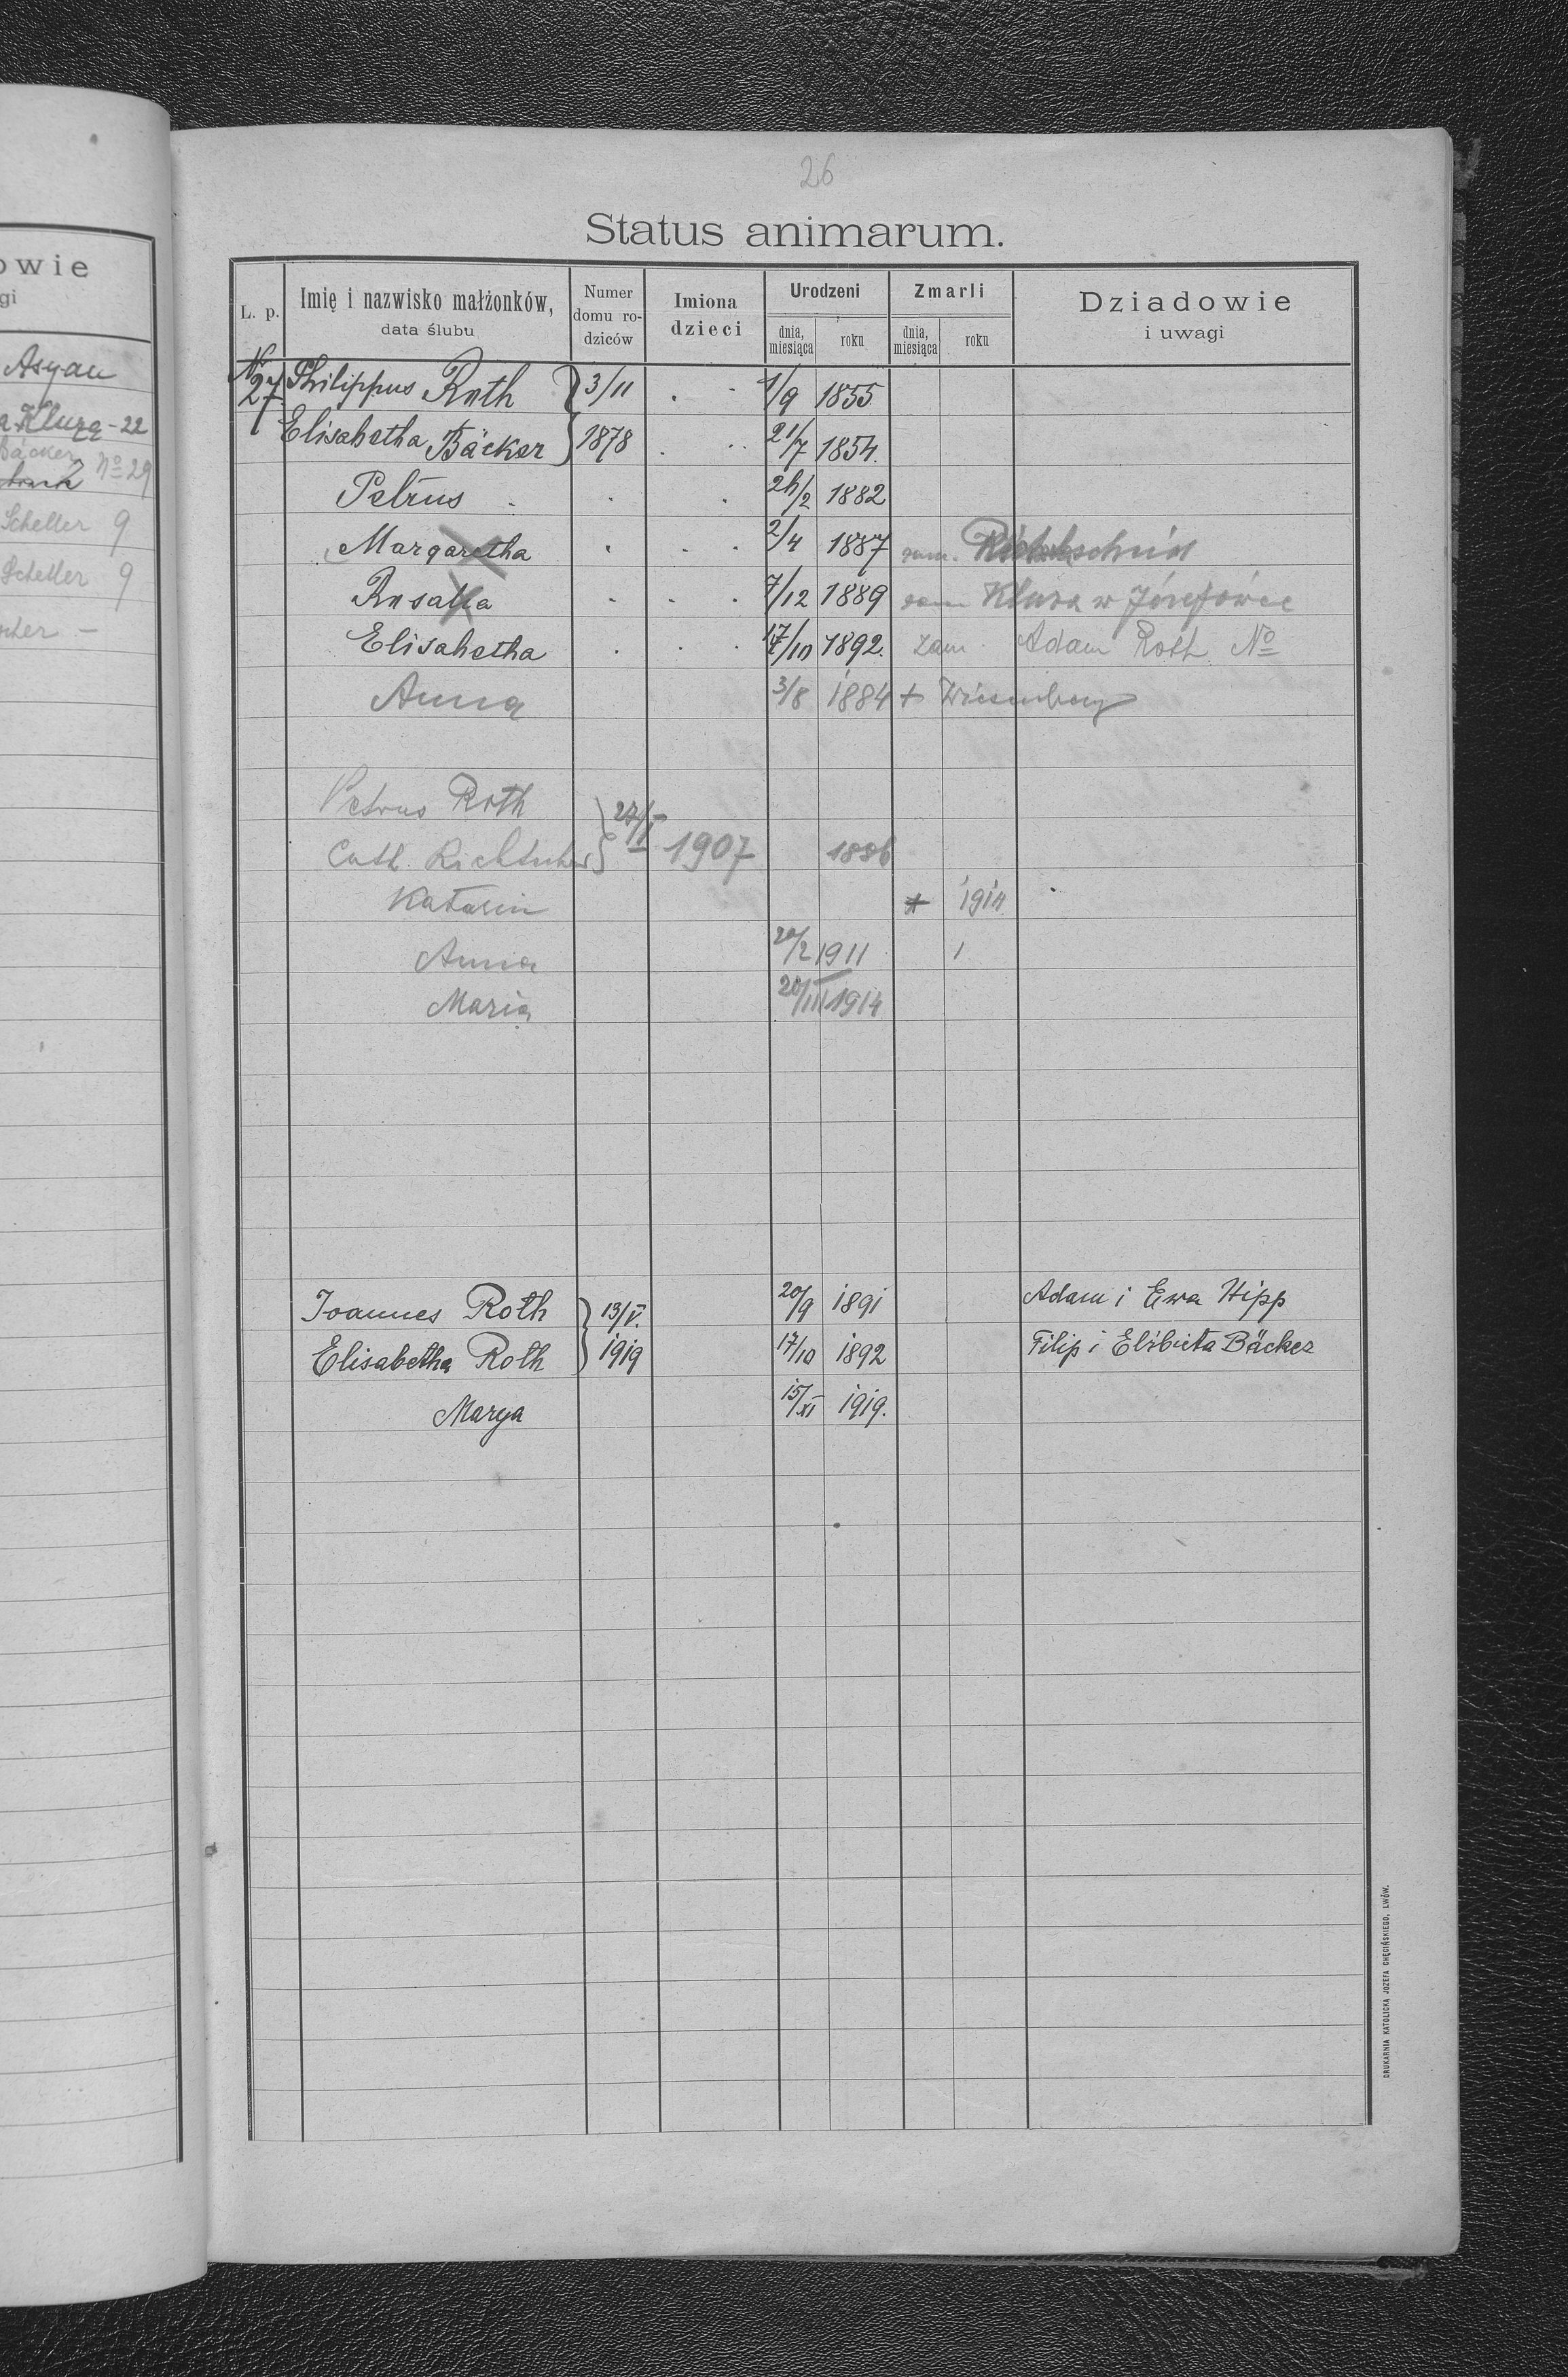 owie
gi
Asyan
a Kluzą - 22
Bäcker
No 29
Scheller 9
Scheller 9
26
Status animarum.
L. p.
Imię i nazwisko małżonków,
data ślubu
Numer
domu ro-
dziców
Imiona
dzieci
Urodzeni
dnia,
miesiąca
roku
Zmarli
dnia,
miesiąca
roku
Dziadowie
i uwagi
No 27 Philippus Roth } 3/11 1/9 1855
Elisabetha Bäcker } 1878 21/7 1854.
Petrus 26/2 1882
Margaretha 2/4 1887 zam.
Rosalia 7/12 1889 zam Kluza w Józefówce
Elisabetha 17/10 1892. zam Adam Roth No
Anna 3/8 1884 + Wiesenberg
Petrus Roth } 27/I
Cath. } 1907 1886
Katarin + 1914
Anna 20/2 1911
Maria 20/III 1914
Joannes Roth } 13/V. 20/9 1891 Adam i Ewa Hipp
Elisabetha Roth } 1919 17/10 1892 Filip i Elżbieta Bäcker
Marya 15/XI 1919.
DRUKARNIA KATOLICKA JOZEFA CHĘCIŃSKIEGO, LWÓW.